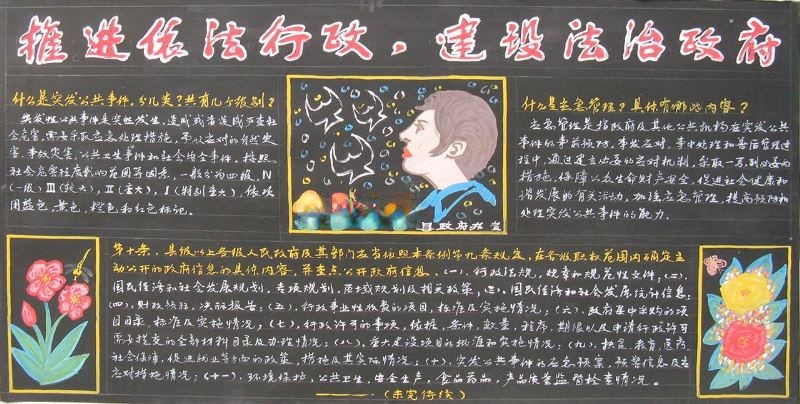 推进依法行政，建设法治政府
什么是突发公共事件，分几类？共有几个级别？
突发性公共事件是突然发生，造成或者造成严重社
会危害，需要采取应急处理措施，予以应对的自然灾
害，事故灾害，公共卫生事件和社会治安事件，按照
社会危害程度影响范围等因素，一般分为四级，Ⅳ
（一般）Ⅲ（较大），Ⅱ（重大），Ⅰ（特别重大），依次
用蓝色，黄色，橙色和红色标记。
县政府办宣
什么是应急管理？具体有哪些内容？
应急管理是指政府及其他公共机构在突发公共
事件的事前预防，事发应对，事中处理和善后管理过
程中，通过建立必要的应对机制，采取一系列必要的
措施，保障公众生命财产安全，促进社会健康和
谐发展的有关活动。加强应急管理，提高预防和
处理突发公共事件的能力。
第十条，县级以上各级人民政府及其部门应当依照本条例第九条规定，在各级职权范围内确定主
动公开的政府信息的具体内容，并重点公开政府信息。（一），行政法规，规章和规范性文件，（二），
国民经济和社会发展规划，专项规划，区域规划及相关政策，（三），国民经济和社会发展统计信息；
（四），财政预算，决算报告；（五），行政事业性收费的项目，标准及实施情况；（六），政府集中采购的项
目目录，标准及实施情况；（七），行政许可的事项，依据，条件，数量，程序，期限以及申请行政许可
需要提交的全部材料目录及办理情况；（八），重大建设项目的批准和实施情况；（九），扶贫，教育，医疗，
社会保障，促进就业等方面的政策，措施及其实施情况；（十），突发公共事件的应急预案，预警信息及
应对措施情况；（十一），环境保护，公共卫生，安全生产，食品药品，产品质量监督检查情况。
（未完待续）